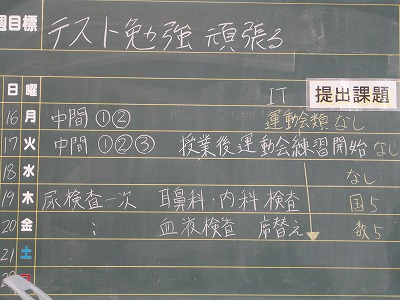 週目標 テスト勉強 頑張る
日 曜 IT 提出課題
16 月 中間 ①② 運動会類 なし
17 火 中間 ①②③ 授業後運動会練習開始 なし
18 水 なし
19 木 尿検査一次 耳鼻科・内科 検査 国5
20 金 〃 血液検査 席替え 数5
21 土